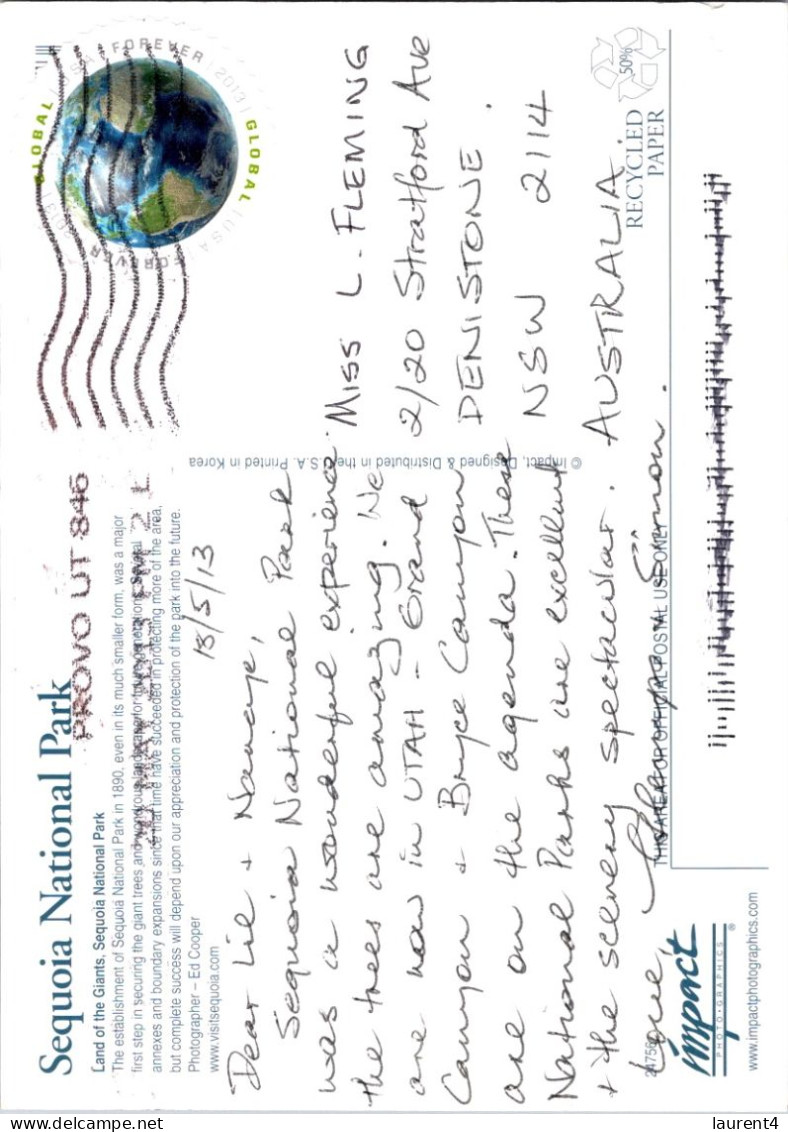 Sequoia National Park
Land of the Giants, Sequoia National Park
The establishment of Sequoia National Park in 1890, even in its much smaller form, was a major
first step in securing the giant trees and
annexes and boundary expansions since that time have succeeded in protecting more of the area,
but complete success will depend upon our appreciation and protection of the park into the future.
Photographer – Ed Cooper
www.visitsequoia.com
PROVO UT 846
GLOBAL
FOREVER
2013
GLOBAL
USA
FOREVER
18/5/13
Dear Liz + Nanaye,
Sequoia National Park
was a wonderful experience
the trees are amazing. We
are now in UTAH – Grand
Canyon + Bryce Canyon
are on the agenda. These
National Parks are excellent
+ the scenery spectacular.
Love,
Simon.
Miss L. FLEMING
2/20 Stratford Ave
DENISTONE.
NSW 2114
AUSTRALIA.
© Impact, Designed & Distributed in the U.S.A. Printed in Korea
50%
RECYCLED
PAPER
THIS AREA FOR OFFICIAL POSTAL USE ONLY
24756
impact
PHOTO•GRAPHICS
®
www.impactphotographics.com
laurent4